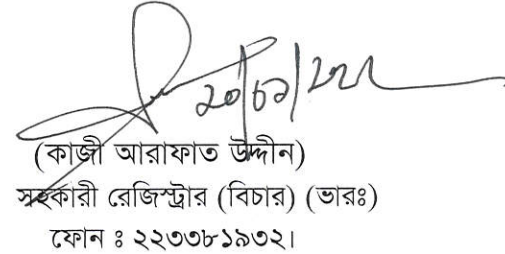 (কাজী আরাফাত উদ্দীন)
সহকারী রেজিস্ট্রার (বিচার) (ভারঃ)
ফোন ঃ ২২৩৩৮১৯৩২।